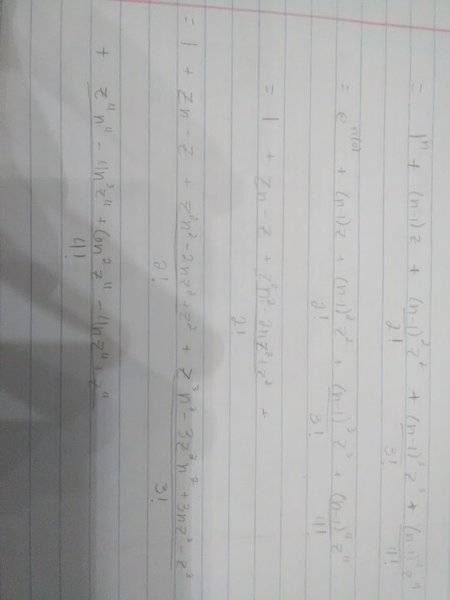 = 1ⁿ + (n-1)z + (n-1)²z² / 2! + (n-1)³z³ / 3! + (n-1)⁴z⁴ / 4!
= e^(n(0)) + (n-1)z + (n-1)²z² / 2! + (n-1)³z³ / 3! + (n-1)⁴z⁴ / 4!
= 1 + zn - z + z²n² - 2nz² + z² / 2! +
= 1 + zn - z + z²n² - 2nz² + z² / 2! + z³n³ - 3z³n² + 3nz³ - z³ / 3!
+ z⁴n⁴ - 4n³z⁴ + 6n²z⁴ - 4nz⁴ + z⁴ / 4!